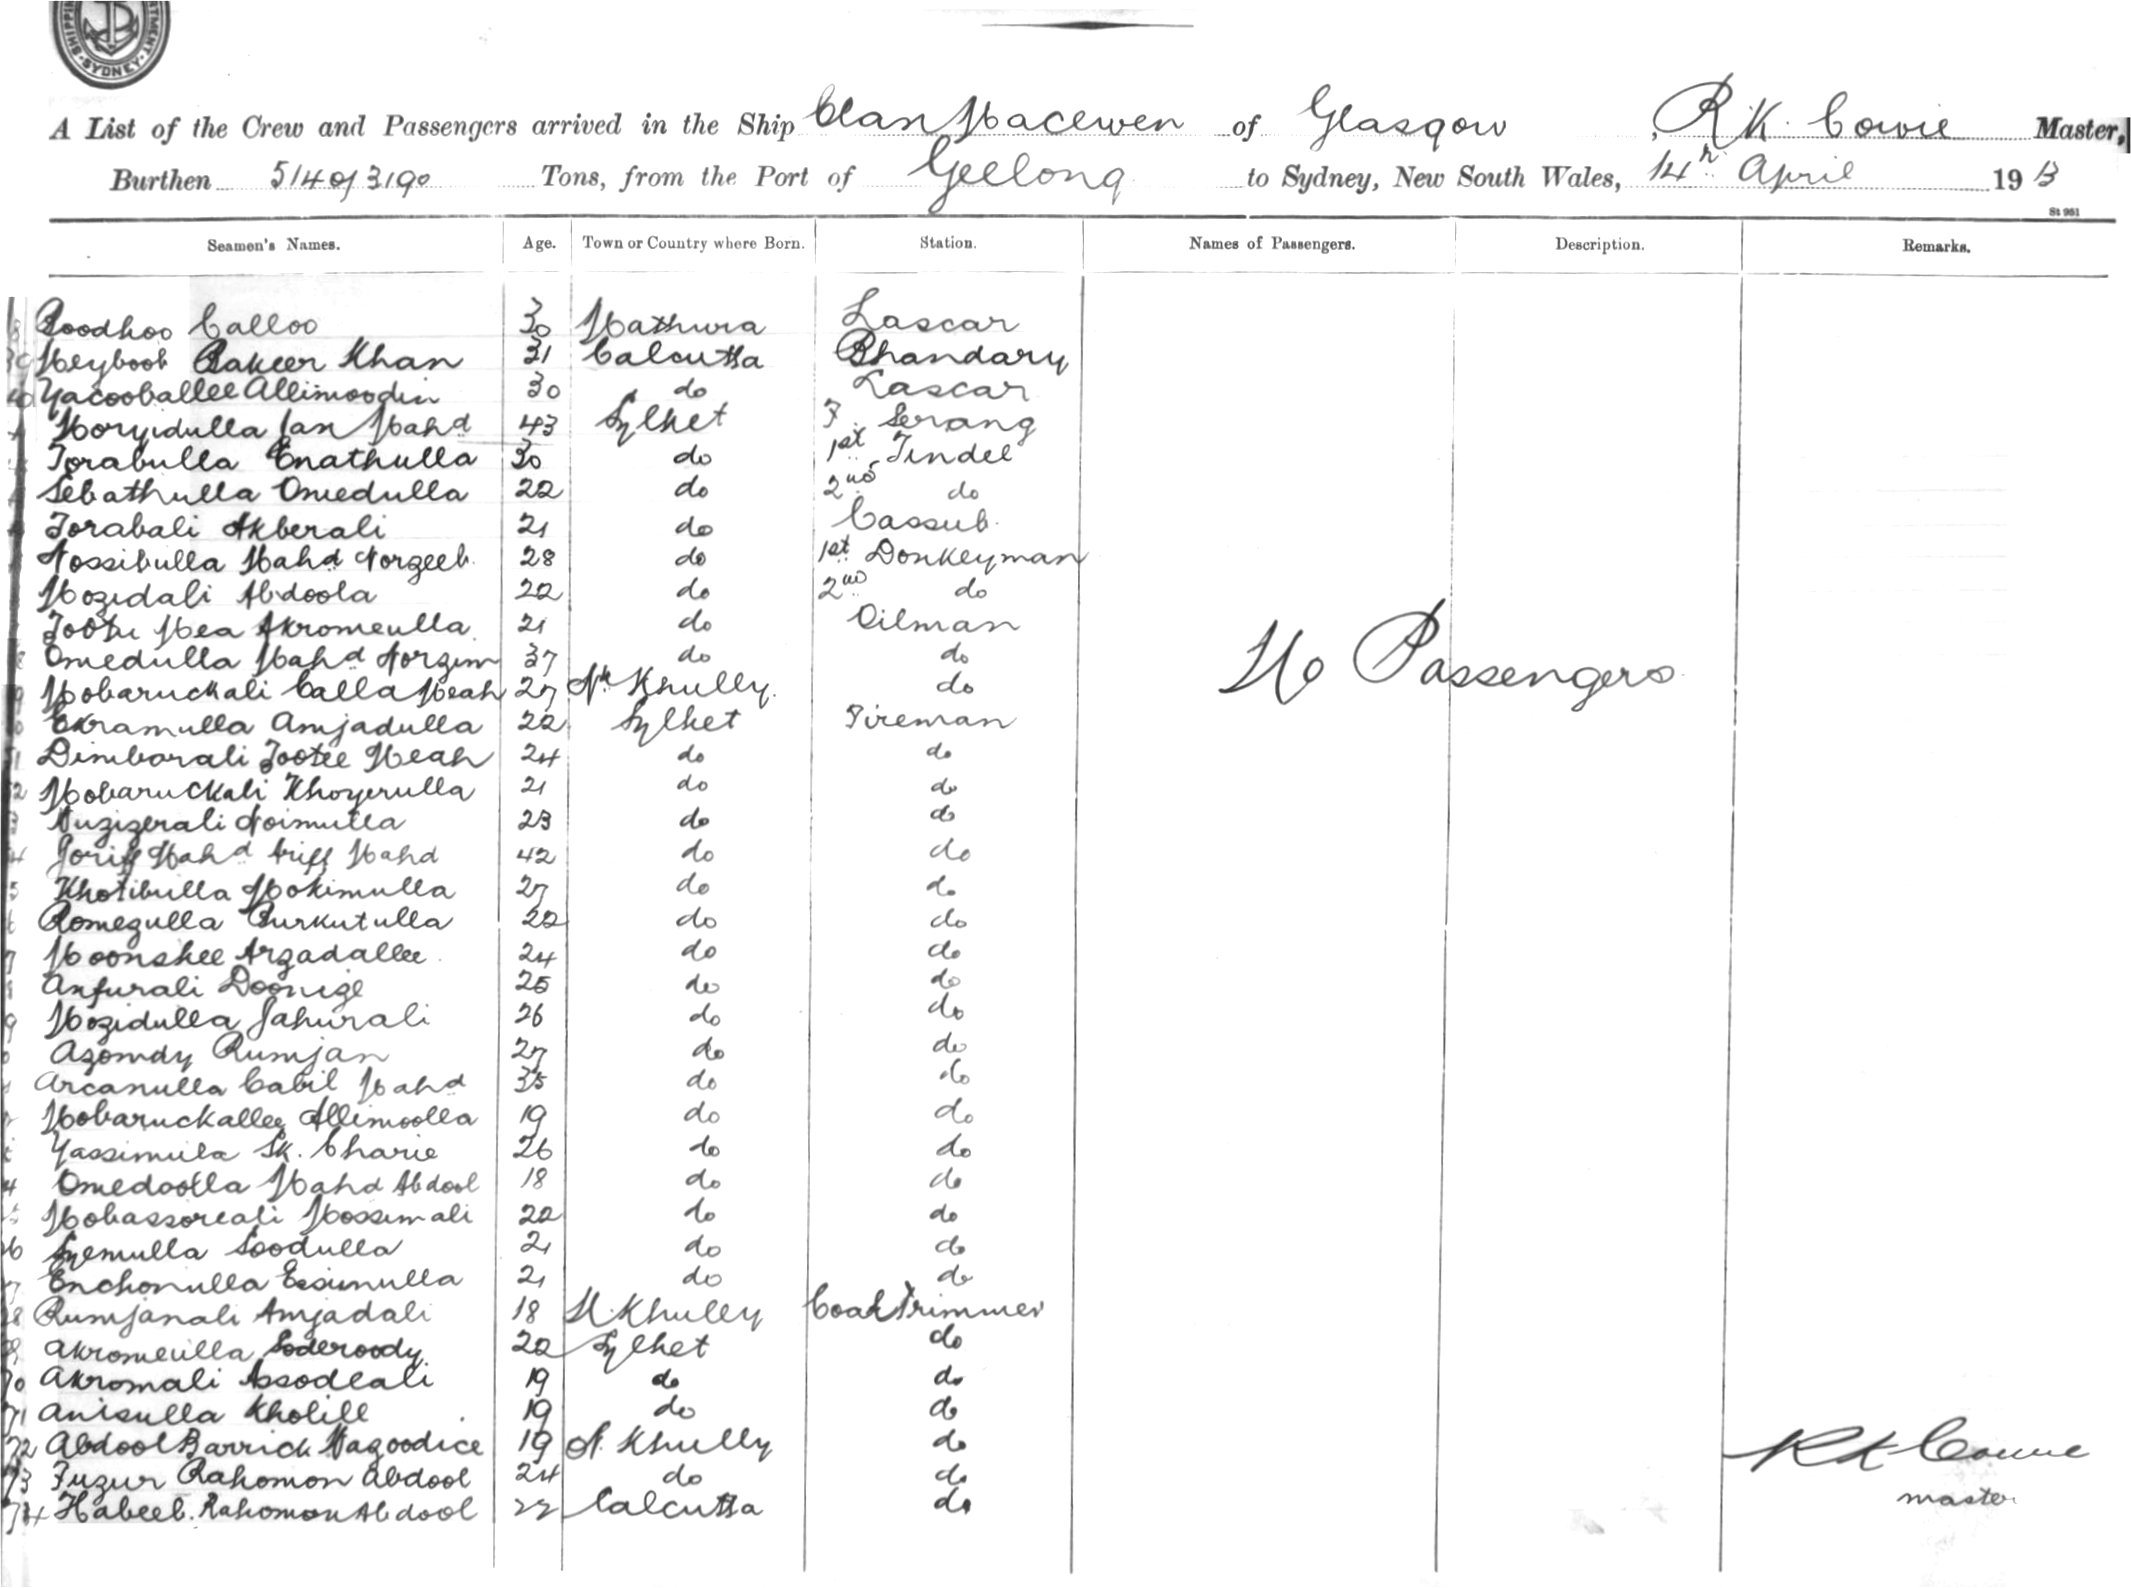 SHIPPI RTMENT SYDNEY
A List of the Crew and Passengers arrived in the Ship Clan Macewen of Glasgow, R.K. Cowie Master,
Burthen 5140/3190 Tons, from the Port of Geelong to Sydney, New South Wales, 14th April 1913
St 951
Seamen's Names. Age. Town or Country where Born. Station. Names of Passengers. Description. Remarks.
Boodhoo Calloo 30 Mathura Lascar
39 Meyboob Bakeer Khan 31 Calcutta Bhandary
40 Yacooballee Allimoodin 30 do Lascar
Moryidulla Jan Mahd 43 Sylhet F. Serang
Torabulla Enathulla 30 do 1st Tindel
Sebathulla Omedulla 22 do 2nd do
Torabali Akberali 21 do Cassub.
Nossibulla Mahd Norzeeb. 28 do 1st Donkeyman
Mozidali Abdoola 22 do 2nd do
Tootu Mea Akromeulla. 21 do Oilman
Omedulla Mahd Norzim 37 do do
Mobaruckali Calla Meah 27 Nh Khully. do
Ekramulla Amjadulla 22 Sylhet Fireman
Dimbarali Tootee Meah 24 do do
Mobaruckali Khoyerulla 21 do do
Nuzizerali Noimulla 23 do do
Joriff Mahd Ariff Mahd 42 do do
Khotibulla Mokimulla 27 do do
Romezulla Burkutulla 22 do do
Moonshee Arzadallee. 24 do do
Anfurali 25 do do
Mozidulla Jahurali 26 do do
Azomdy Rumjan 27 do do
Arcanulla Cabil Mahd 35 do do
Mobaruckallee Allimoolla 19 do do
Yassimula Sk. Charie 26 do do
Omedoolla Mahd Abdool 18 do do
Mobassoreali Mossimali 22 do do
Syemulla Soodulla 21 do do
Enchonulla Essunulla 21 do do
Rumjanali Amjadali 18 N. Khully Coal Trimmer
Akromeulla Soderoody. 22 Sylhet do
70 Akromali Assodeali 19 do do
71 Anisulla Kholill 19 do do
72 Abdool Barrick Nagoodice 19 N. Khully do
73 Fuzur Rahomon Abdool 24 do do
74 Habeeb. Rahomon Abdool 22 Calcutta do
No Passengers
RK Cowie
master